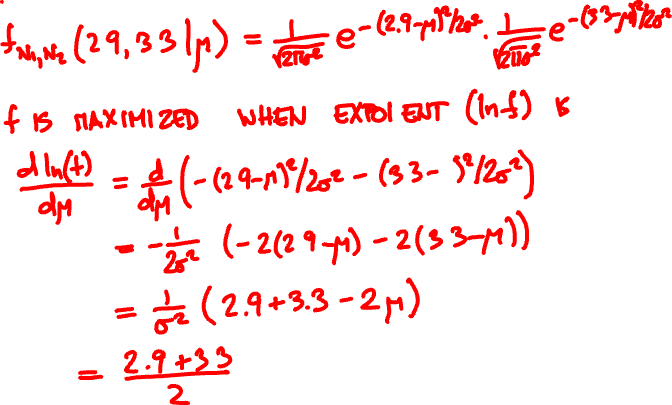 f_{N₁,N₂}(29,33|μ) = 1/√(2πσ²) e^{-(2.9-μ)²/2σ²} · 1/√(2πσ²) e^{-(33-μ)²/2σ²}
f IS MAXIMIZED WHEN EXPOIENT (ln f) IS
d ln(f)/dμ = d/dμ (-(29-μ)²/2σ² - (33- )²/2σ²)
= -1/2σ² (-2(29-μ) - 2(33-μ))
= 1/σ² (2.9+3.3-2μ)
= 2.9+33/2